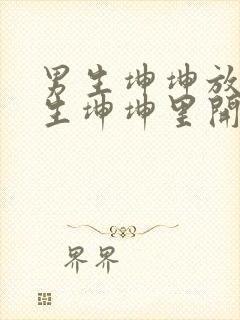 男生坤坤放
生坤坤里開
界界